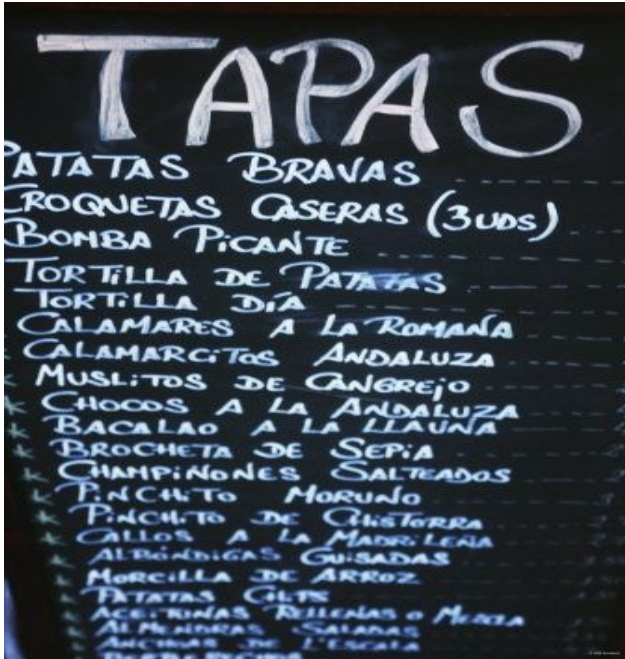 TAPAS
PATATAS BRAVAS
CROQUETAS CASERAS (3 UDS)
BOMBA PICANTE
TORTILLA DE PATATAS
TORTILLA DÍA
CALAMARES A LA ROMANA
CALAMARCITOS ANDALUZA
MUSLITOS DE CANGREJO
CHOCOS A LA ANDALUZA
BACALAO A LA LLAUNA
BROCHETA DE SEPIA
CHAMPIÑONES SALTEADOS
PINCHITO MORUNO
PINCHITO DE CHISTORRA
CALLOS A LA MADRILEÑA
ALBÓNDIGAS GUISADAS
MORCILLA DE ARROZ
PATATAS CHIPS
ACEITUNAS RELLENAS O MEZCLA
ALMENDRAS SALADAS
ANCHOAS DE L'ESCALA
BERBERECHOS